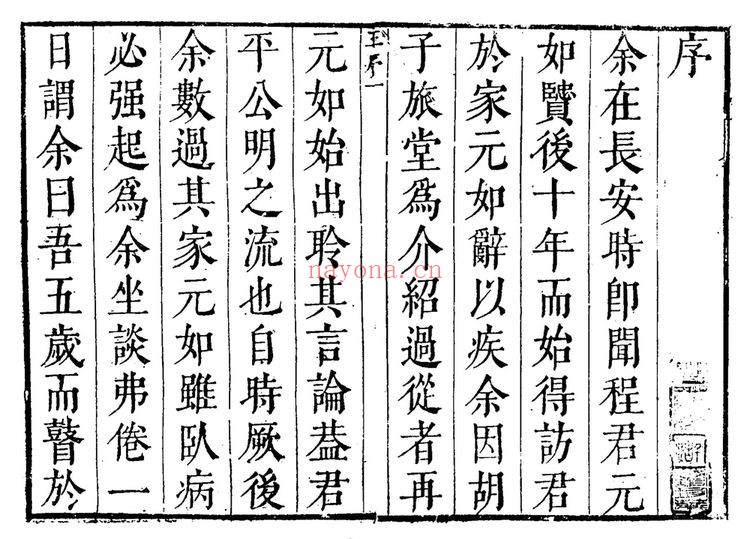 序
余在長安時卽聞程君元
如贒後十年而始得訪君
於家元如辭以疾余因胡
子旅堂爲介紹過從者再
王序一
元如始出聆其言論葢君
平公明之流也自時厥後
余數過其家元如雖臥病
必强起爲余坐談弗倦一
日謂余曰吾五歲而瞽於
nayona.cn